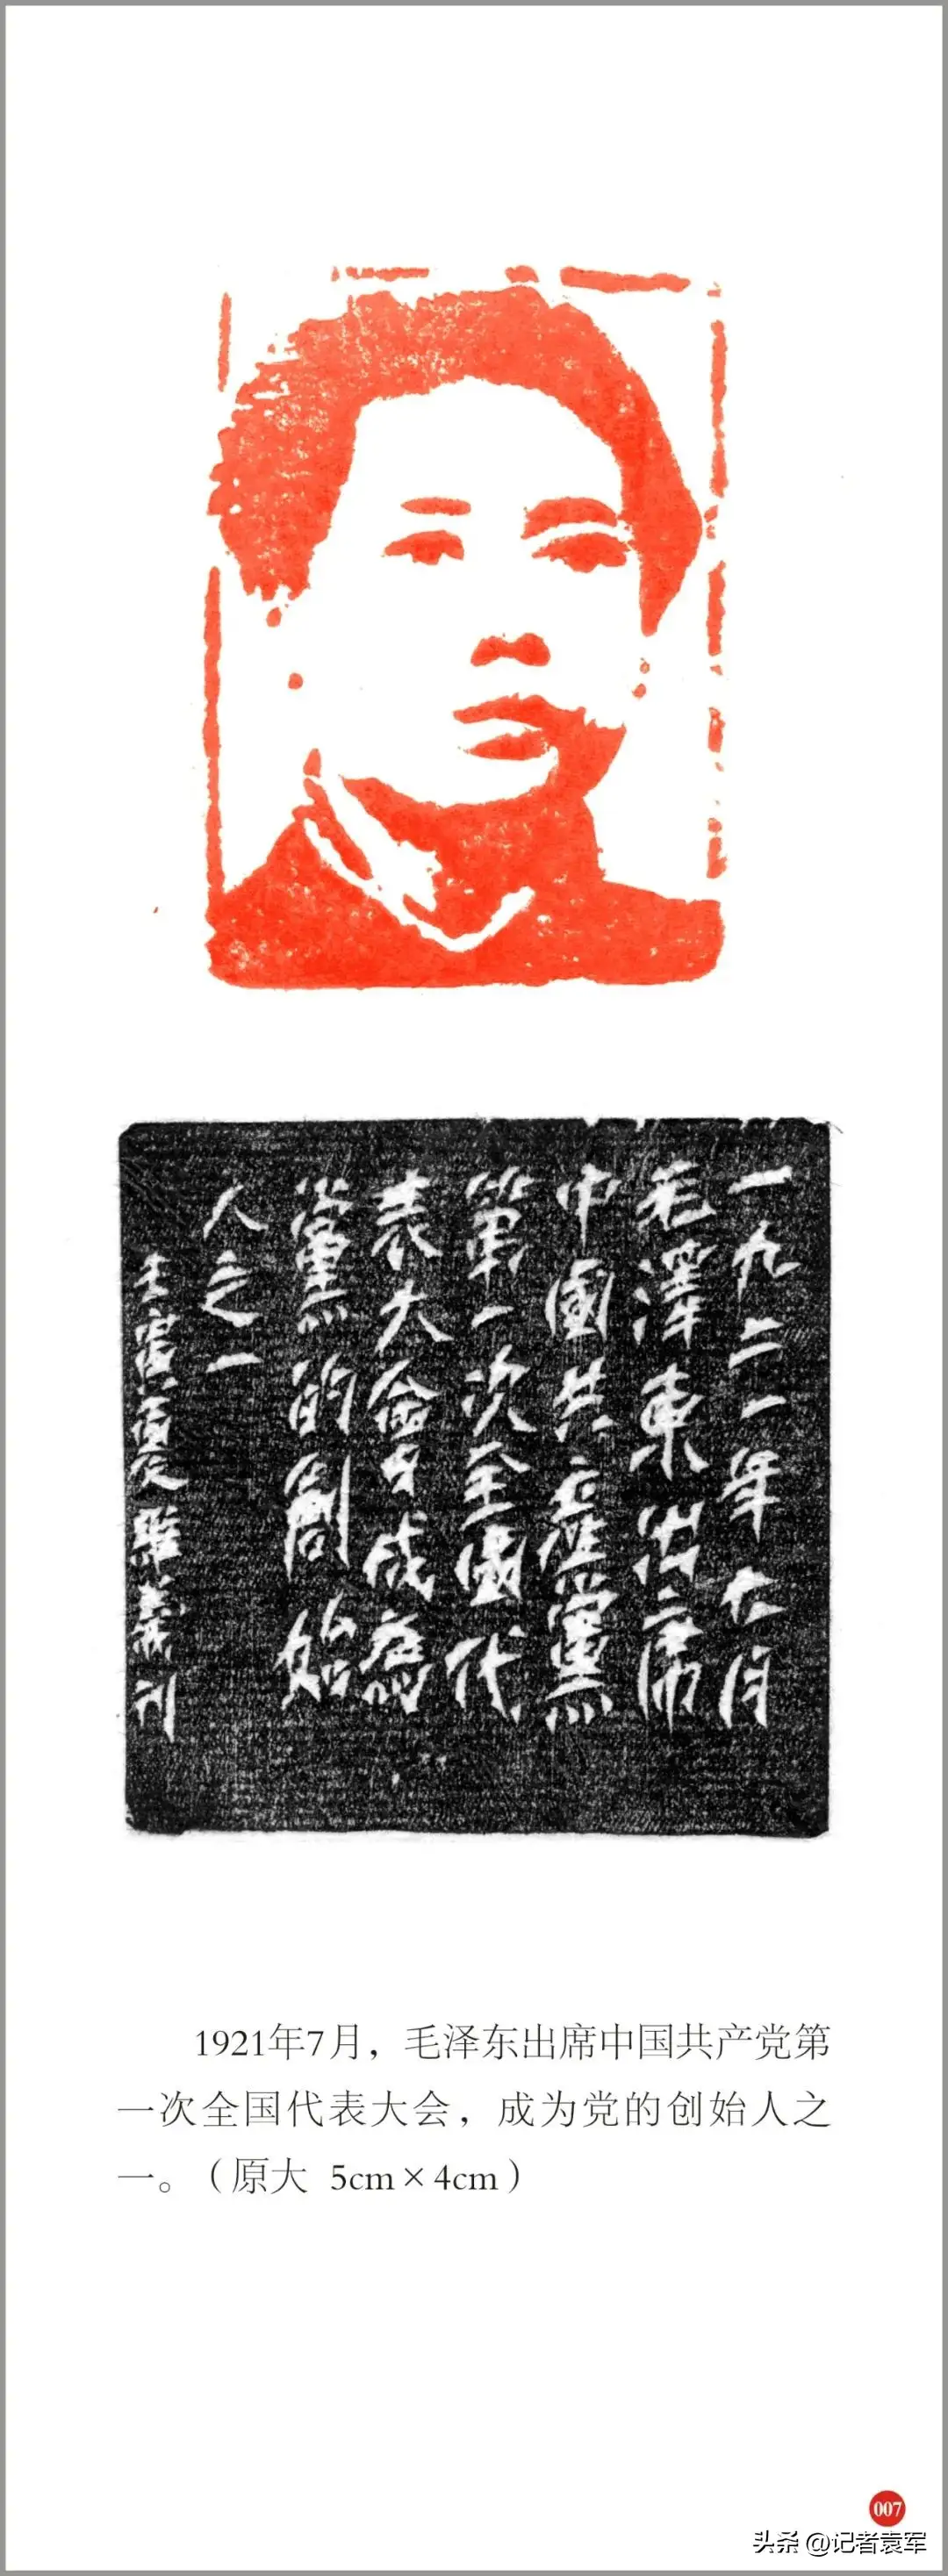 一九二一年七月
毛澤東出席
中國共產黨
第一次全國代
表大會成為
黨的創始
人之一
壬寅夏義刊
1921年7月，毛泽东出席中国共产党第
一次全国代表大会，成为党的创始人之
一。（原大 5cm×4cm）
007
头条 @记者袁军